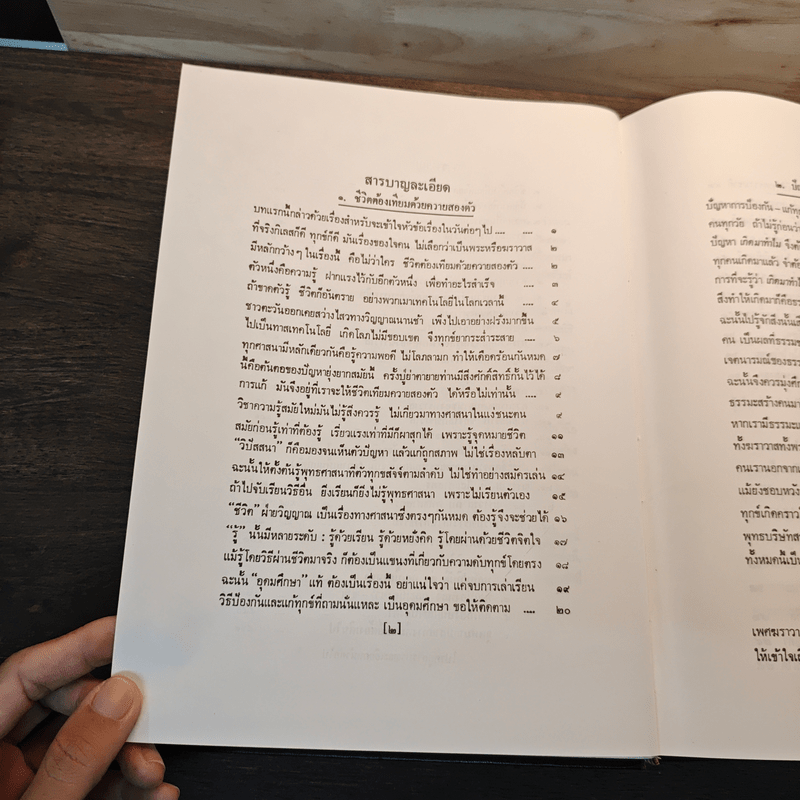 สารบาญละเอียด
๑. ชีวิตต้องเทียมด้วยควายสองตัว
บทแรกนี้กล่าวด้วยเรื่องสำหรับจะเข้าใจหัวข้อเรื่องในวันต่อๆ ไป .... .... ๑
ที่จริงกิเลสก็ดี ทุกข์ก็ดี มันเรื่องของใจคน ไม่เลือกว่าเป็นพระหรือฆราวาส ๒
มีหลักกว้างๆ ในเรื่องนี้ คือไม่ว่าใคร ชีวิตต้องเทียมด้วยควายสองตัว .... ๒
ตัวหนึ่งคือความรู้ ฝากแรงไว้กับอีกตัวหนึ่ง เพื่อทำอะไรสำเร็จ .... ๓
ถ้าขาดตัวรู้ ชีวิตก็อันตราย อย่างพวกเมาเทคโนโลยีในโลกเวลานี้ .... ๔
ชาวตะวันออกเคยสว่างไสวทางวิญญาณนานช้า เพิ่งไปเอาอย่างฝรั่งมากขึ้น ๕
ไปเป็นทาสเทคโนโลยี เกิดโลภไม่มีขอบเขต จึงทุกข์ยากระส่ำระสาย .... ๖
ทุกศาสนามีหลักเดียวกันคือรู้ความพอดี ไม่โลภลามก ทำให้เดือดร้อนกันหมด ๗
นี้คือต้นตอของปัญหายุ่งยากสมัยนี้ ครั้งปู่ย่าตายายท่านมีสิ่งศักดิ์สิทธิ์กั้นไว้ได้ ๘
การแก้ มันจึงอยู่ที่เราจะให้ชีวิตเทียมควายสองตัว ได้หรือไม่เท่านั้น .... ๙
วิชาความรู้สมัยใหม่มันไม่รู้สิ่งควรรู้ ไม่เกี่ยวมาทางศาสนาในแง่ชนะตน ๙
สมัยก่อนรู้เท่าที่ต้องรู้ เรี่ยวแรงเท่าที่มีก็ผาสุกได้ เพราะรู้จุดหมายชีวิต ๑๑
“วิปัสสนา” ก็คือมองจนเห็นตัวปัญหา แล้วแก้ถูกสภาพ ไม่ใช่เรื่องหลับตา ๑๓
ฉะนั้นให้ตั้งต้นรู้พุทธศาสนาที่ตัวทุกขสัจจ์ตามลำดับ ไม่ใช่ทำอย่างสมัครเล่น ๑๔
ถ้าไปจับเรียนวิธีอื่น ยิ่งเรียนก็ยิ่งไม่รู้พุทธศาสนา เพราะไม่เรียนตัวเอง ๑๕
“ชีวิต” ฝ่ายวิญญาณ เป็นเรื่องทางศาสนาซึ่งตรงๆกันหมด ต้องรู้จึงจะช่วยได้ ๑๖
“รู้” นั้นมีหลายระดับ : รู้ด้วยเรียน รู้ด้วยหยั่งคิด รู้โดยผ่านด้วยชีวิตจิตใจ ๑๗
แม้รู้โดยวิธีผ่านชีวิตมาจริง ก็ต้องเป็นแขนงที่เกี่ยวกับความดับทุกข์โดยตรง ๑๘
ฉะนั้น “อุดมศึกษา” แท้ ต้องเป็นเรื่องนี้ อย่าแน่ใจว่า แค่จบการเล่าเรียน ๑๙
วิธีป้องกันและแก้ทุกข์ที่ถามนั่นแหละ เป็นอุดมศึกษา ขอให้ติดตาม .... ๒๐
[๒]
๒.
ปัญหาการป้องกัน – แก้ทุก
คนทุกวัย ถ้าไม่รู้ก่อนว่า
ปัญหา เกิดมาทำไม จึงต้
ทุกคนเกิดมาแล้ว จำต้อ
การที่จะรู้ว่า เกิดมาทำไม
สิ่งทำให้เกิดมาก็คือธรร
ฉะนั้นไปรู้จักสิ่งนั้นเสี
คน เป็นผลที่ธรรมช
เจตนารมณ์ของธรร
ฉะนั้นจึงควรมุ่งศึก
ธรรมะสร้างคนมา
หากเรามีธรรมะเ
ทั้งฆราวาสทั้งพร
คนเรานอกจากเ
แม้ยังชอบหวัง
ทุกข์เกิดคราวใ
พุทธบริษัทส
ทั้งหมดนี้เป็น
เพศฆราวา
ให้เข้าใจเ